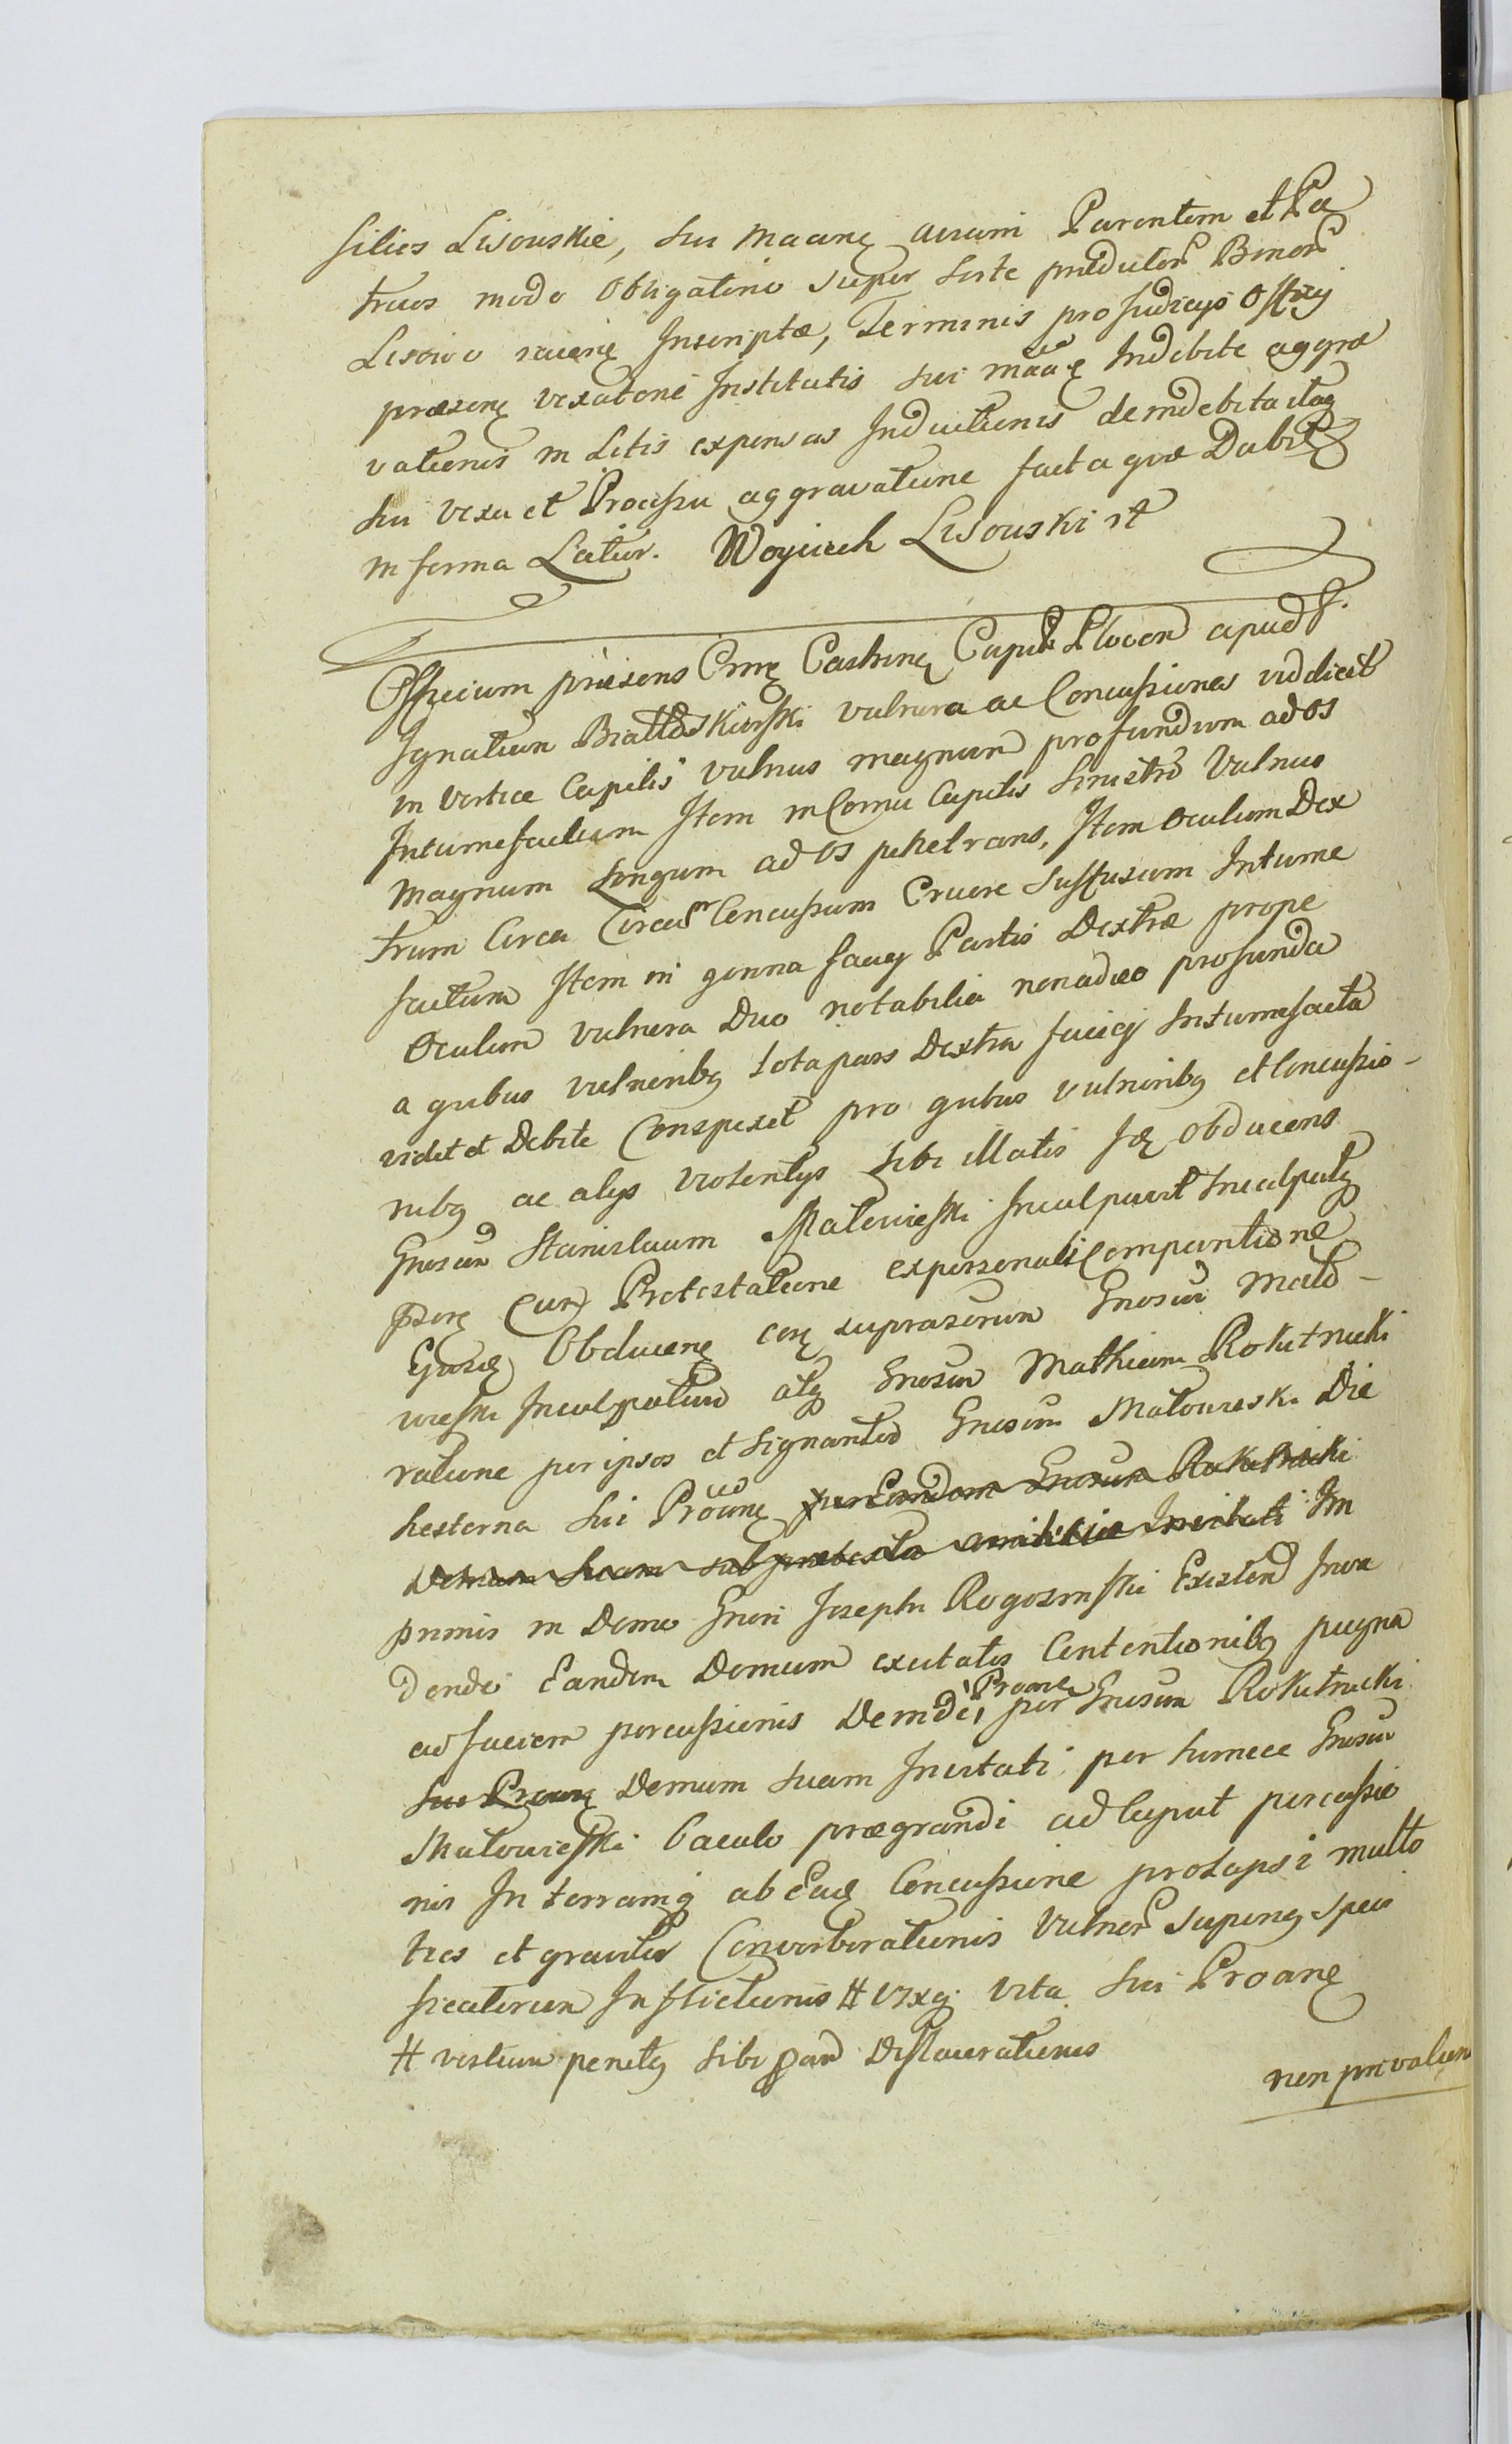 filios Lisouskie, sui Maanę avum Parentem et Pa
truos modo obligatorio super sorte prædictor Bonor
Lisowo racenę Inscriptæ, Terminis pro Judicijs Officij
præsenę vexatone Institutis sui maaę Indebite aggra
vationis in Litis expensas Inductionis de indebita itaq
sui vexa et Processu aggravatione facta græ Dabit
in forma Latior. Wojciech Lisouski
Officium præsens Crnę Castrenę Capit Plocen apud G.
Ignatium vulnera ac Concussiones viddicet
in Vertice Capitis vulnus magnum profundum ad os
Intumefactum Item in Cornu Capitis Sinistro Vulnus
Magnum Longum ad Os penetrans, Item Oculum Dex
trum Circa Circum Concussum Cruore Suffusum Intume
factum Item in genna faciej Partis Dextræ prope
Oculum Vulnera Duo notabilia non adeo profunda
a quibus vulneribq tota pars Dextra faciej Intumefacta
vidit et Debite Conspexit pro quibus vulneribq et Concussio-
nibq ac alijs violentijs sibi illatis Obducens
Gnosum Stanislaum Matowieski Inculpavit Inculpatq
Cum Protestatione ex personali Comparitione
Obducenę suprascrum Gnosum Mato-
wieski Inculpatum atq Gnosum Mathiam Rokitnicki
ratione per ipsos et signanter Gnosum Matowieski Die
hesterna Sui Proanę per Eundem Gnosum Rokitnicki
Domum Suam sub prætextu amicitiæ Invitati Im
primis in Domo Gnosi Josephi Rogozinski Existend Inva
dendo Eandem Domum excitatis Contentionibq pugna
ad faciem percussionis Deinde, Proanę per Gnosum Rokitnicki
Sui Proanę Domum Suam Invitati per Gnosum
Matowieski baculo prægrandi ad Caput percussio
nis In terramq ab Concussione prolapsi multo
ties et graviter Converberationis Vulner Superius speci
ficatorum Inflictionis # Vixq vita Sui Proanę
# vestium penitq sibi Dislacerationis
non prævalen